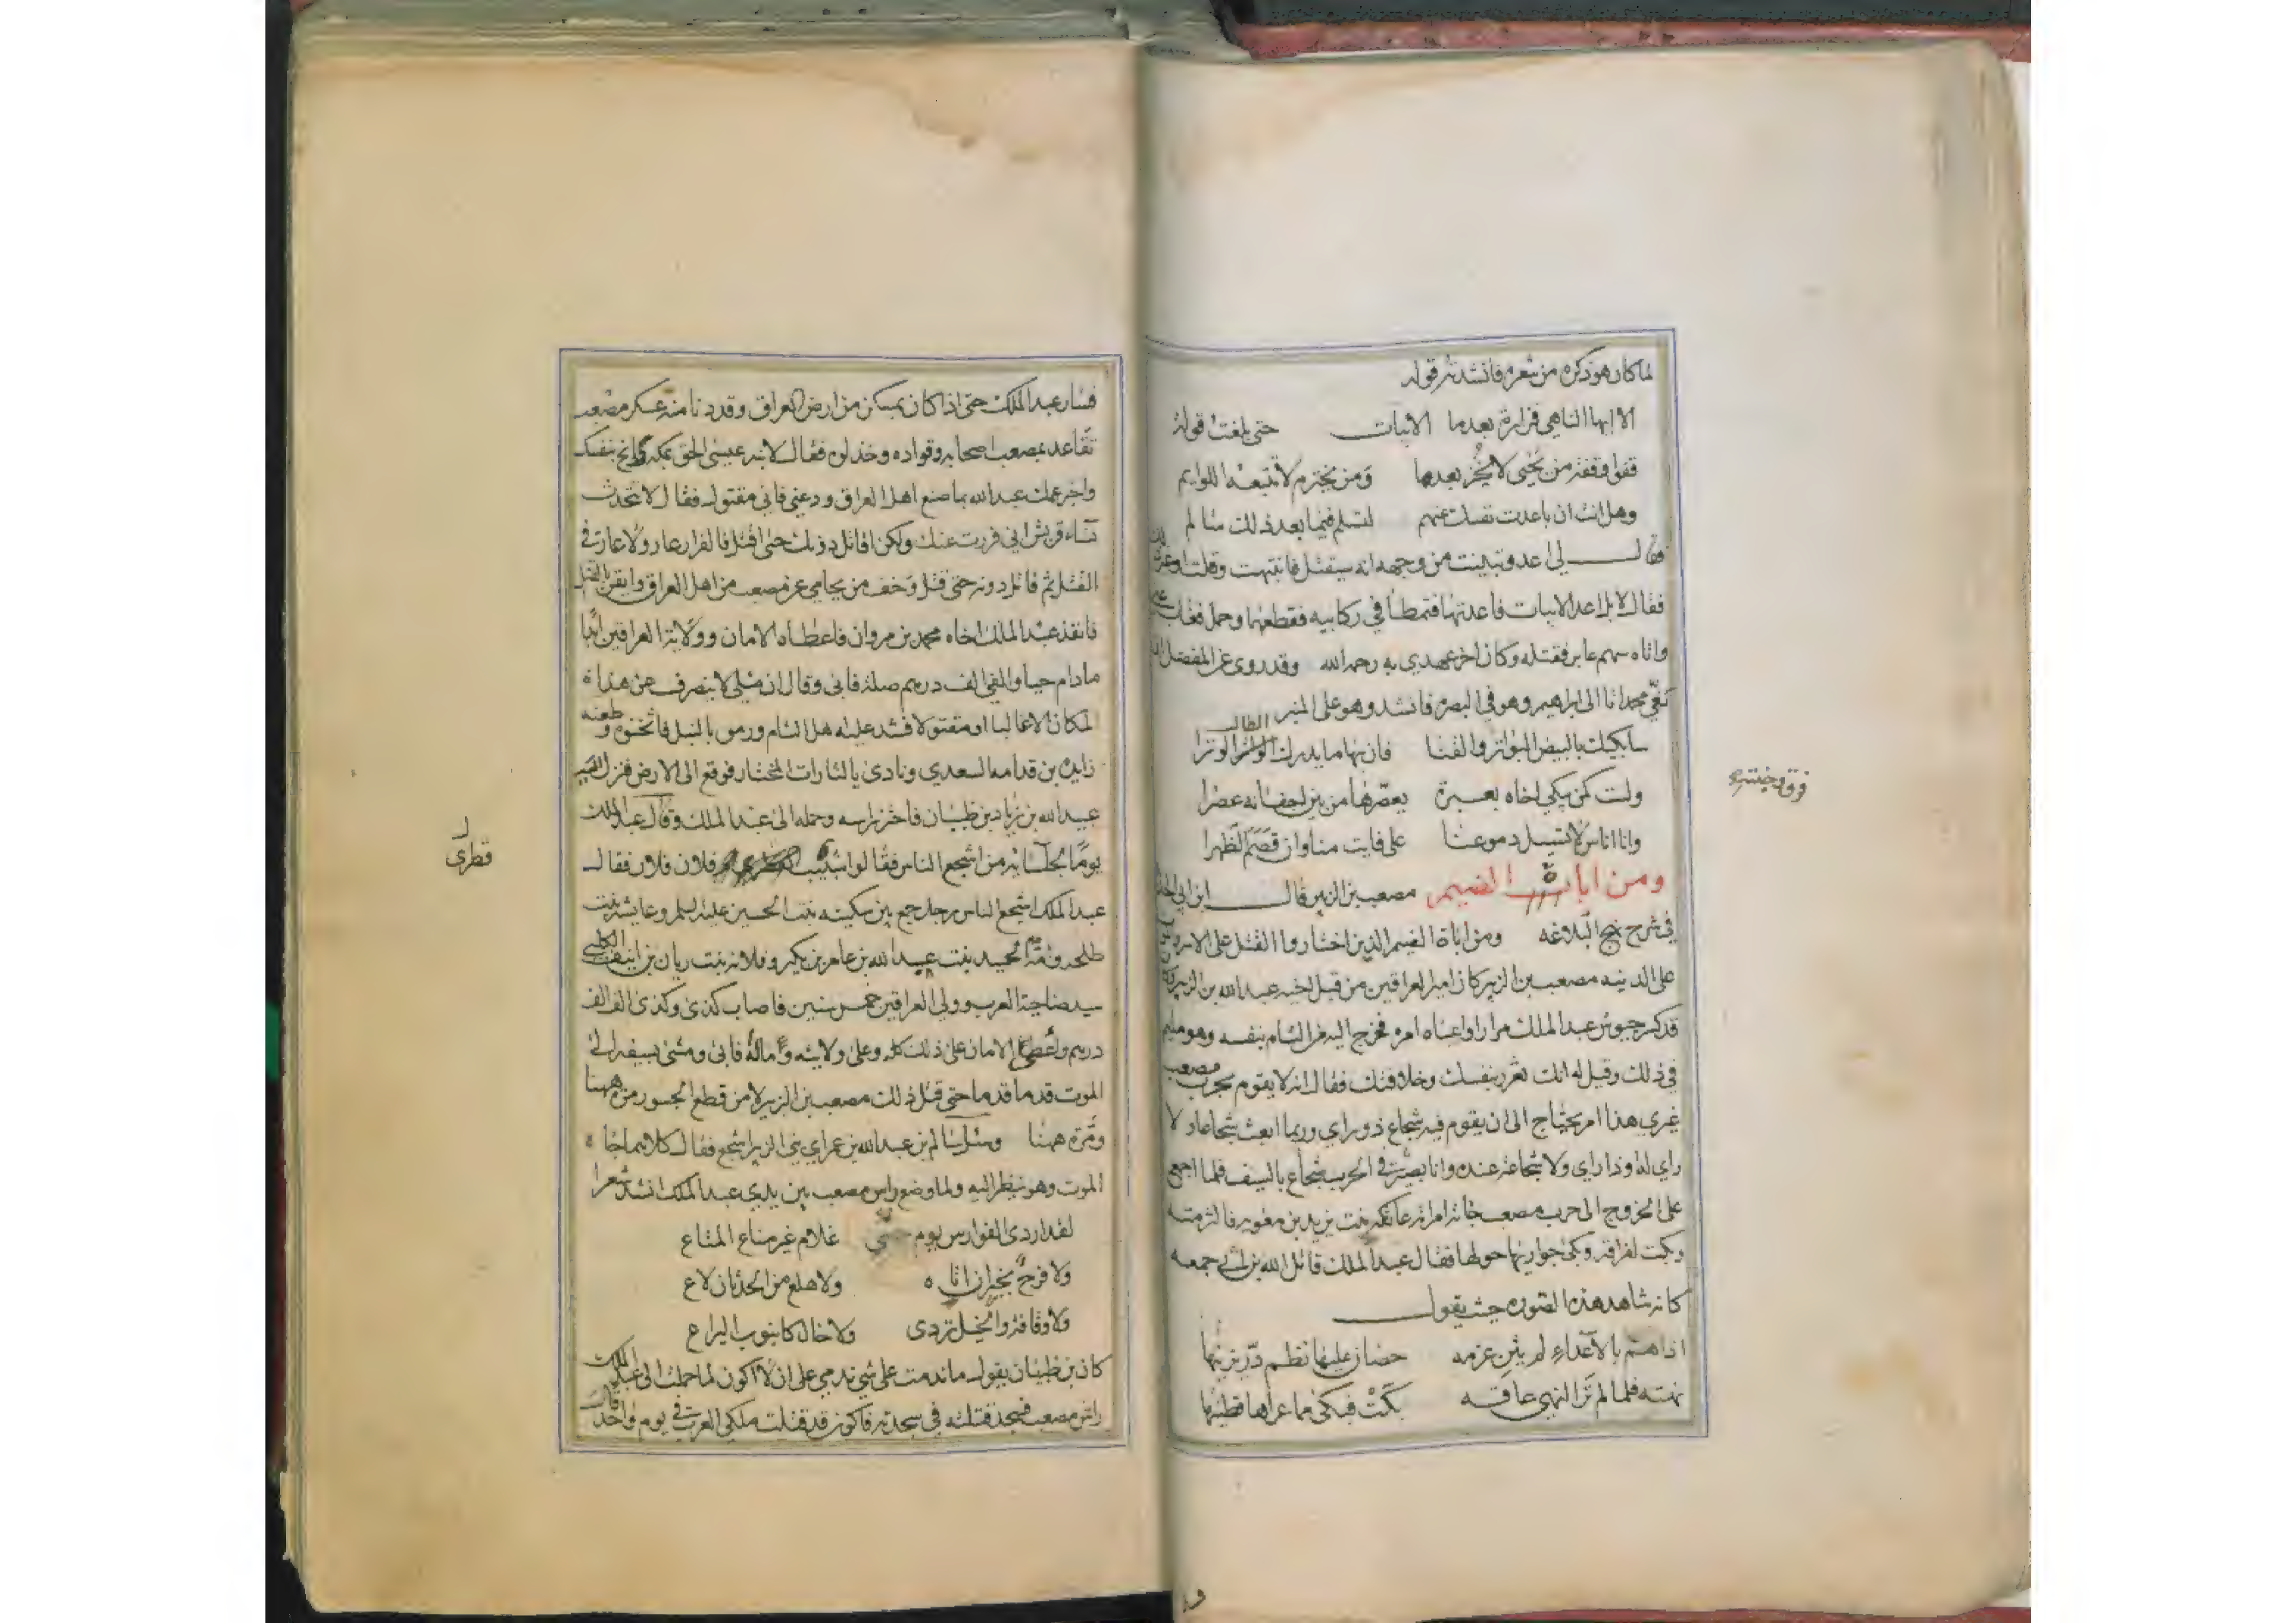 لما كان هو ذكره من شعره فانشدته قوله
الا ايها الناهي فزارة بعدما الابيات حتى بلغت قوله
قفوا وقفة من يحيى لا يخز بعدها ومن يخترم لا تتبعه اللوايم
وهل انت ان باعدت نفسك عنهم لتسلم فيما بعد ذلك سالم
فقال لي اعد وتبينت من وجهه انه سيقتل فانتبهت وقلت او غير ذلك
فقال لا بل اعد الابيات فاعدتها فتمطا في ركابيه فقطعهما وحمل فغاب عني
واتاه سهم عاير فقتله وكان اخر عهدي به رحمه الله وقد روى عن المفضل
نعي محمدانا الى ابراهيم وهو في البصره فانشد وهو على المنبر
سابكيك بالبيض البواتر والقنا فان بها ما يدرك الطالب الوترا
ولست كمن يبكي اخاه بعبرة يعصرها من بين اجفانه عصرا
وانا اناس لا تسيل دموعنا على فايت منا وان قصم الظهرا
ومن اباة الضيم مصعب بن الزبير قال ابن ابي
في شرح نهج البلاغه ومن اباة الضيم الذين اختاروا القتل على الاسر
على الدنيه مصعب بن الزبير كان امير العراقين من قبل اخيه عبد الله بن الزبير
قد كسر جيوش عبد الملك مرارا واعياه امره فخرج اليه من الشام بنفسه وهو مليم
في ذلك وقيل له انك تغرر بنفسك وخلافتك فقال انه لا يقوم بحرب مصعب
غيري هذا امر يحتاج الى ان يقوم فيه شجاع ذو راي وربما ابعث شجاعا ولا
راي له او ذا راي ولا شجاعة عنده وانا بصير في الحرب شجاع بالسيف فلما اجمع
على الخروج الى حرب مصعب جائته امراته عاتكه بنت يزيد بن معويه فالتزمته
وبكت لفراقه وبكى جواريها حولها فقال عبد الملك قاتل الله بن ابي جمعه
كانه شاهد هذه الصوره حيث يقول
اذا هم بالاعداء لم يثن عزمه حصان عليها نظم در يزينها
نهته فلما لم تر النهي عاقه بكت فبكى مما عراها قطينها
فسار عبد الملك حتى اذا كان بمسكن من ارض العراق وقد دنا منه عسكر مصعب
تقاعد بمصعب اصحابه وقواده وخذلوه فقال لابنه عيسى الحق بمكه وانج بنفسك
واخبر عمك عبد الله بما صنع اهل العراق ودعني فاني مقتول فقال لا تتحدث
نساء قريش اني فررت عنك ولكن اقاتل دونك حتى اقتل فالفرار عار ولا عار في
القتل ثم قاتل دونه حتى قتل وخف من يحامي عن مصعب من اهل العراق وايقن بالقتل
فانفذ عبد الملك اخاه محمد بن مروان فاعطاه الامان وولاية العراقين ابدا
مادام حيا والفي الف درهم صلة فابى وقال ان مثلي لا ينصرف عن هذا
المكان الا غالبا او مقتولا فشد عليه اهل الشام ورموه بالنبل فاثخنوه وطعنه
زايده بن قدامه السعدي ونادى يالثارات المختار فوقع الى الارض فنزل اليه
عبيد الله بن زياد بن ظبيان فاحتز راسه وحمله الى عبد الملك وقال عبد الملك
يوما لجلسائه من اشجع الناس فقالوا شبيب فلان فلان فقال
عبد الملك اشجع الناس رجل جمع بين سكينه بنت الحسين عليه السلم وعايشه بنت
طلحه وامة الحميد بنت عبد الله بن عامر بن كريز وفلانه بنت ريان بن انيف الكلبي
سيد ضاحية العرب وولي العراقين خمس سنين فاصاب كذى وكذى الف الف
درهم واعطي الامان على ذلك كله وعلى ولايته وماله فابى ومشى بسيفه الى
الموت قدما قدما حتى قتل ذلك مصعب بن الزبير لا من قطع الجسور مرة ههنا
ومرة ههنا وسئل سالم بن عبد الله بن عمر اي بني الزبير اشجع فقال كلاهما جاءه
الموت وهو ينظر اليه ولما وضع راس مصعب بين يدي عبد الملك انشد شعرا
لقد اردى الفوارس يوم حسي غلام غير مناع المتاع
ولا فرح بخير ان اتاه ولا هلع من الحدثان لاع
ولا وقافة والخيل تردي ولا خال كانبوب اليراع
كان بن ظبيان يقول ما ندمت على شي ندمي على ان لا اكون لما حملت الى عبد الملك
راس مصعب فسجد قتلته في سجدته فاكون قد قتلت ملكي العرب في يوم واحد قال
قطري